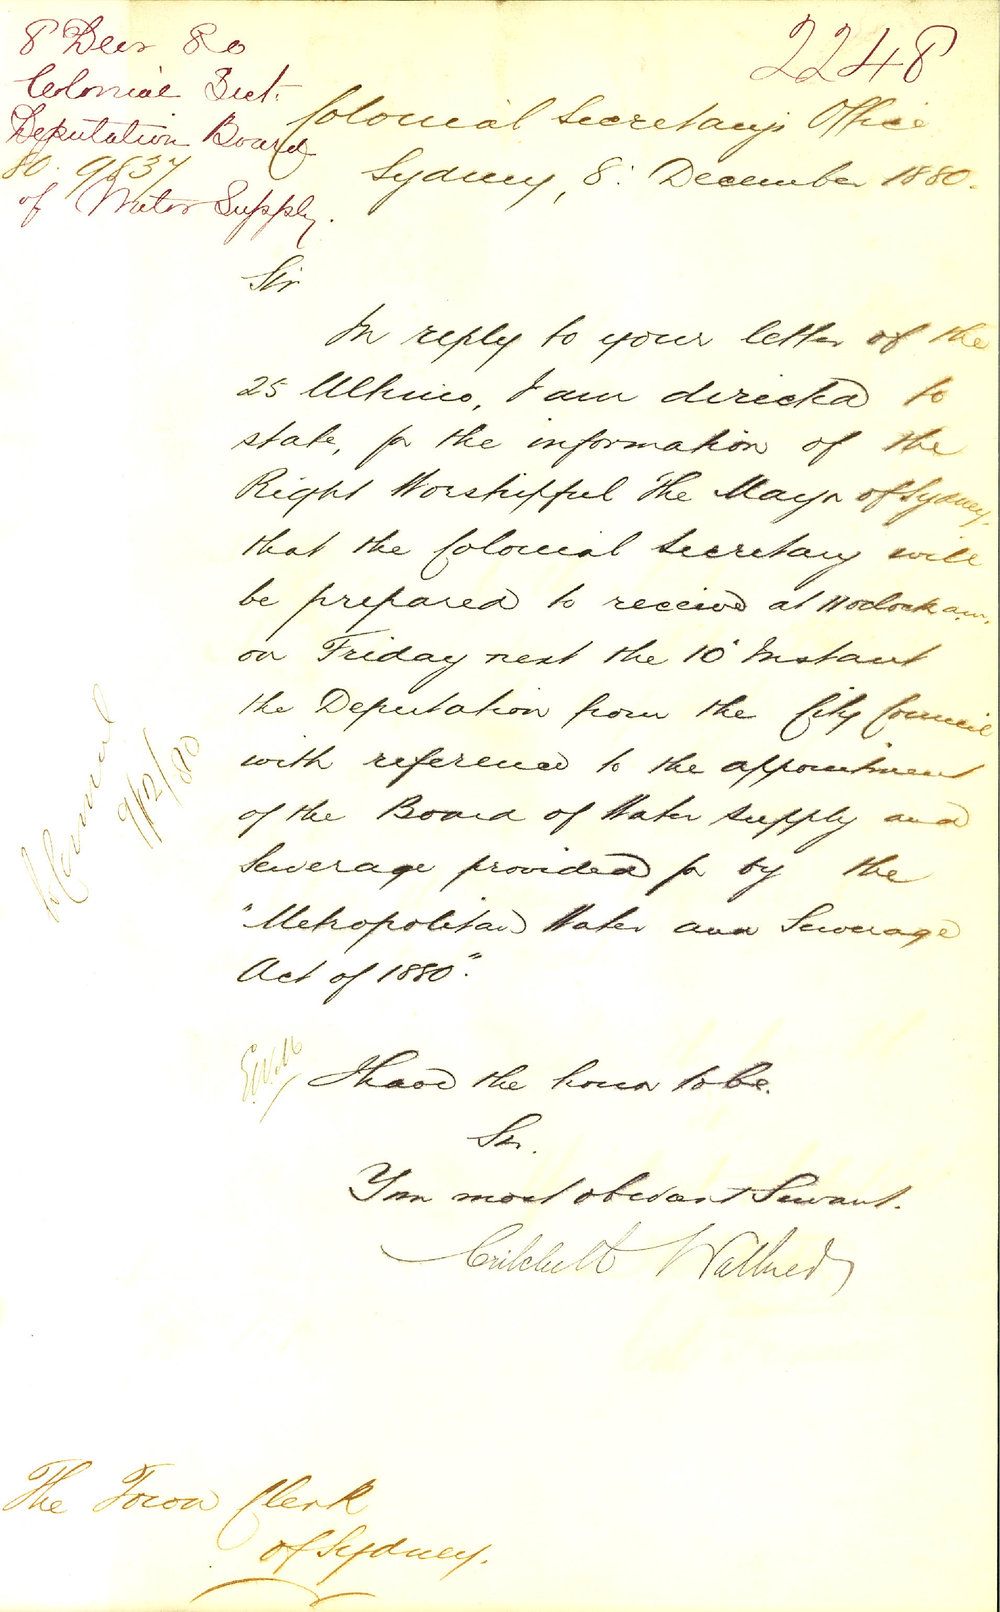 2248
8 Decr 80
Colonial Sect.
Deputation Board
80. 9837
of Water Supply.
Colonial Secretary's Office
Sydney, 8: December 1880.
Sir
In reply to your letter of the
25 Ultimo, I am directed to
state, for the information of the
Right Worshipful The Mayor of Sydney,
that the Colonial Secretary will
be prepared to receive at 11 oclock a.m.
on Friday next the 10' Instant
the Deputation from the City Council
with reference to the appointment
of the Board of Water Supply and
Sewerage provided for by the
"Metropolitan Water and Sewerage
Act of 1880".
Council
9/12/80
I have the honor to be.
Sir.
Your most obedient Servant.
Critchett Walker
The Town Clerk
of Sydney.